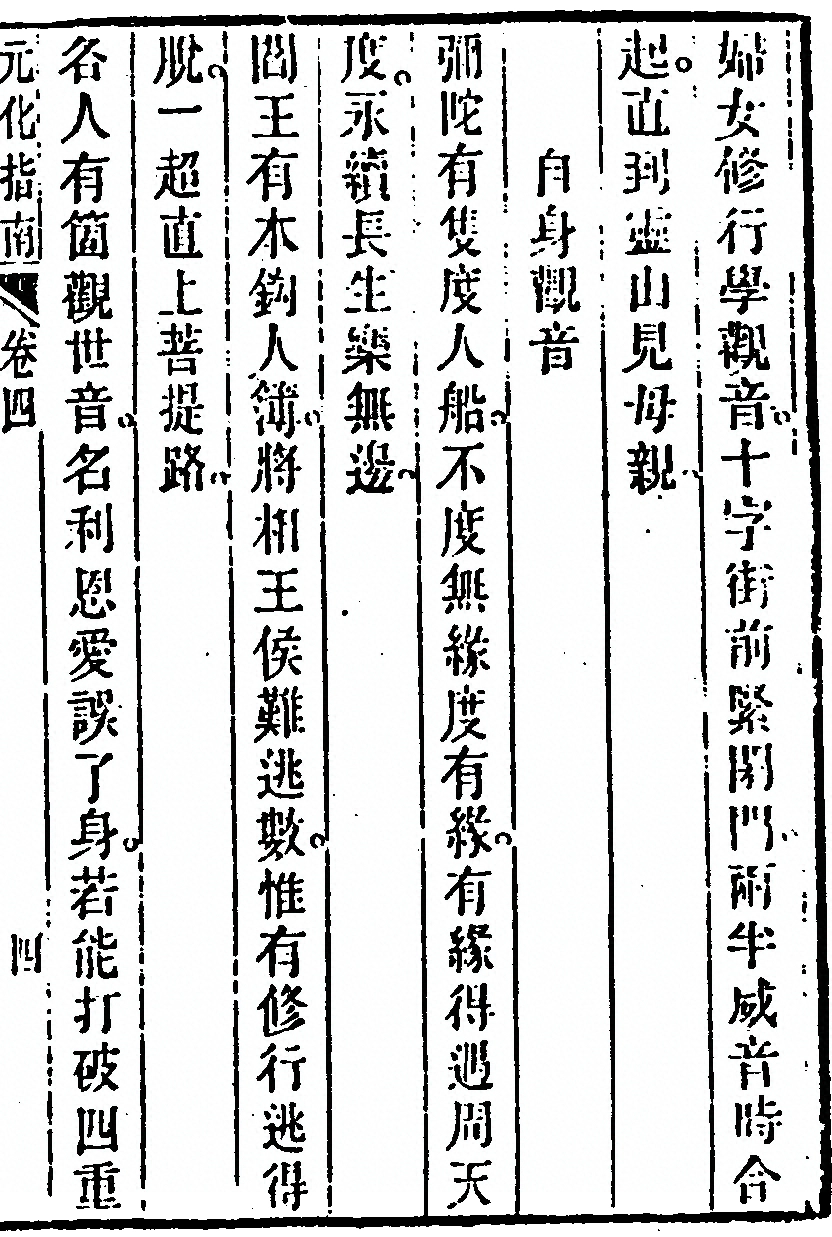 婦女修行學觀音十字街前緊閉門兩半威音時合
起直到靈山見母親
自身觀音
彌陀有隻度人船不度無緣度有緣有緣得遇周天
度永續長生樂無邊
閻王有本鈎人簿將相王侯難逃數惟有修行逃得
脫一超直上菩提路
各人有箇觀世音名利恩愛誤了身若能打破四重
元化指南 卷四 四